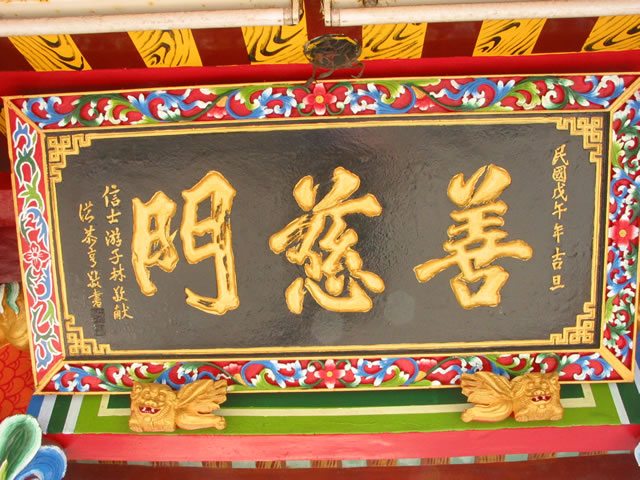 民國戊午年吉旦
善慈門
信士游子林敬獻
洪恭亨敬書